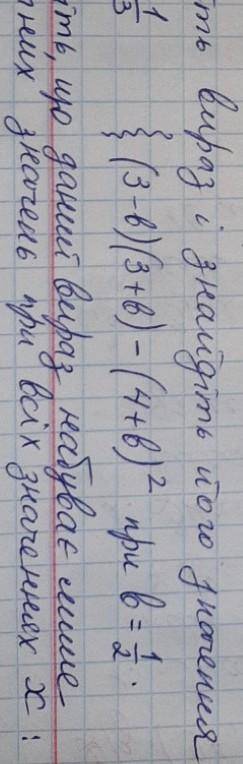 вираз і знайдіть його значення
(3-в)(3+в) - (4+в)² при в = 1/2.
1/3
що даний вираз набуває лише
значень при всіх значеннях х: